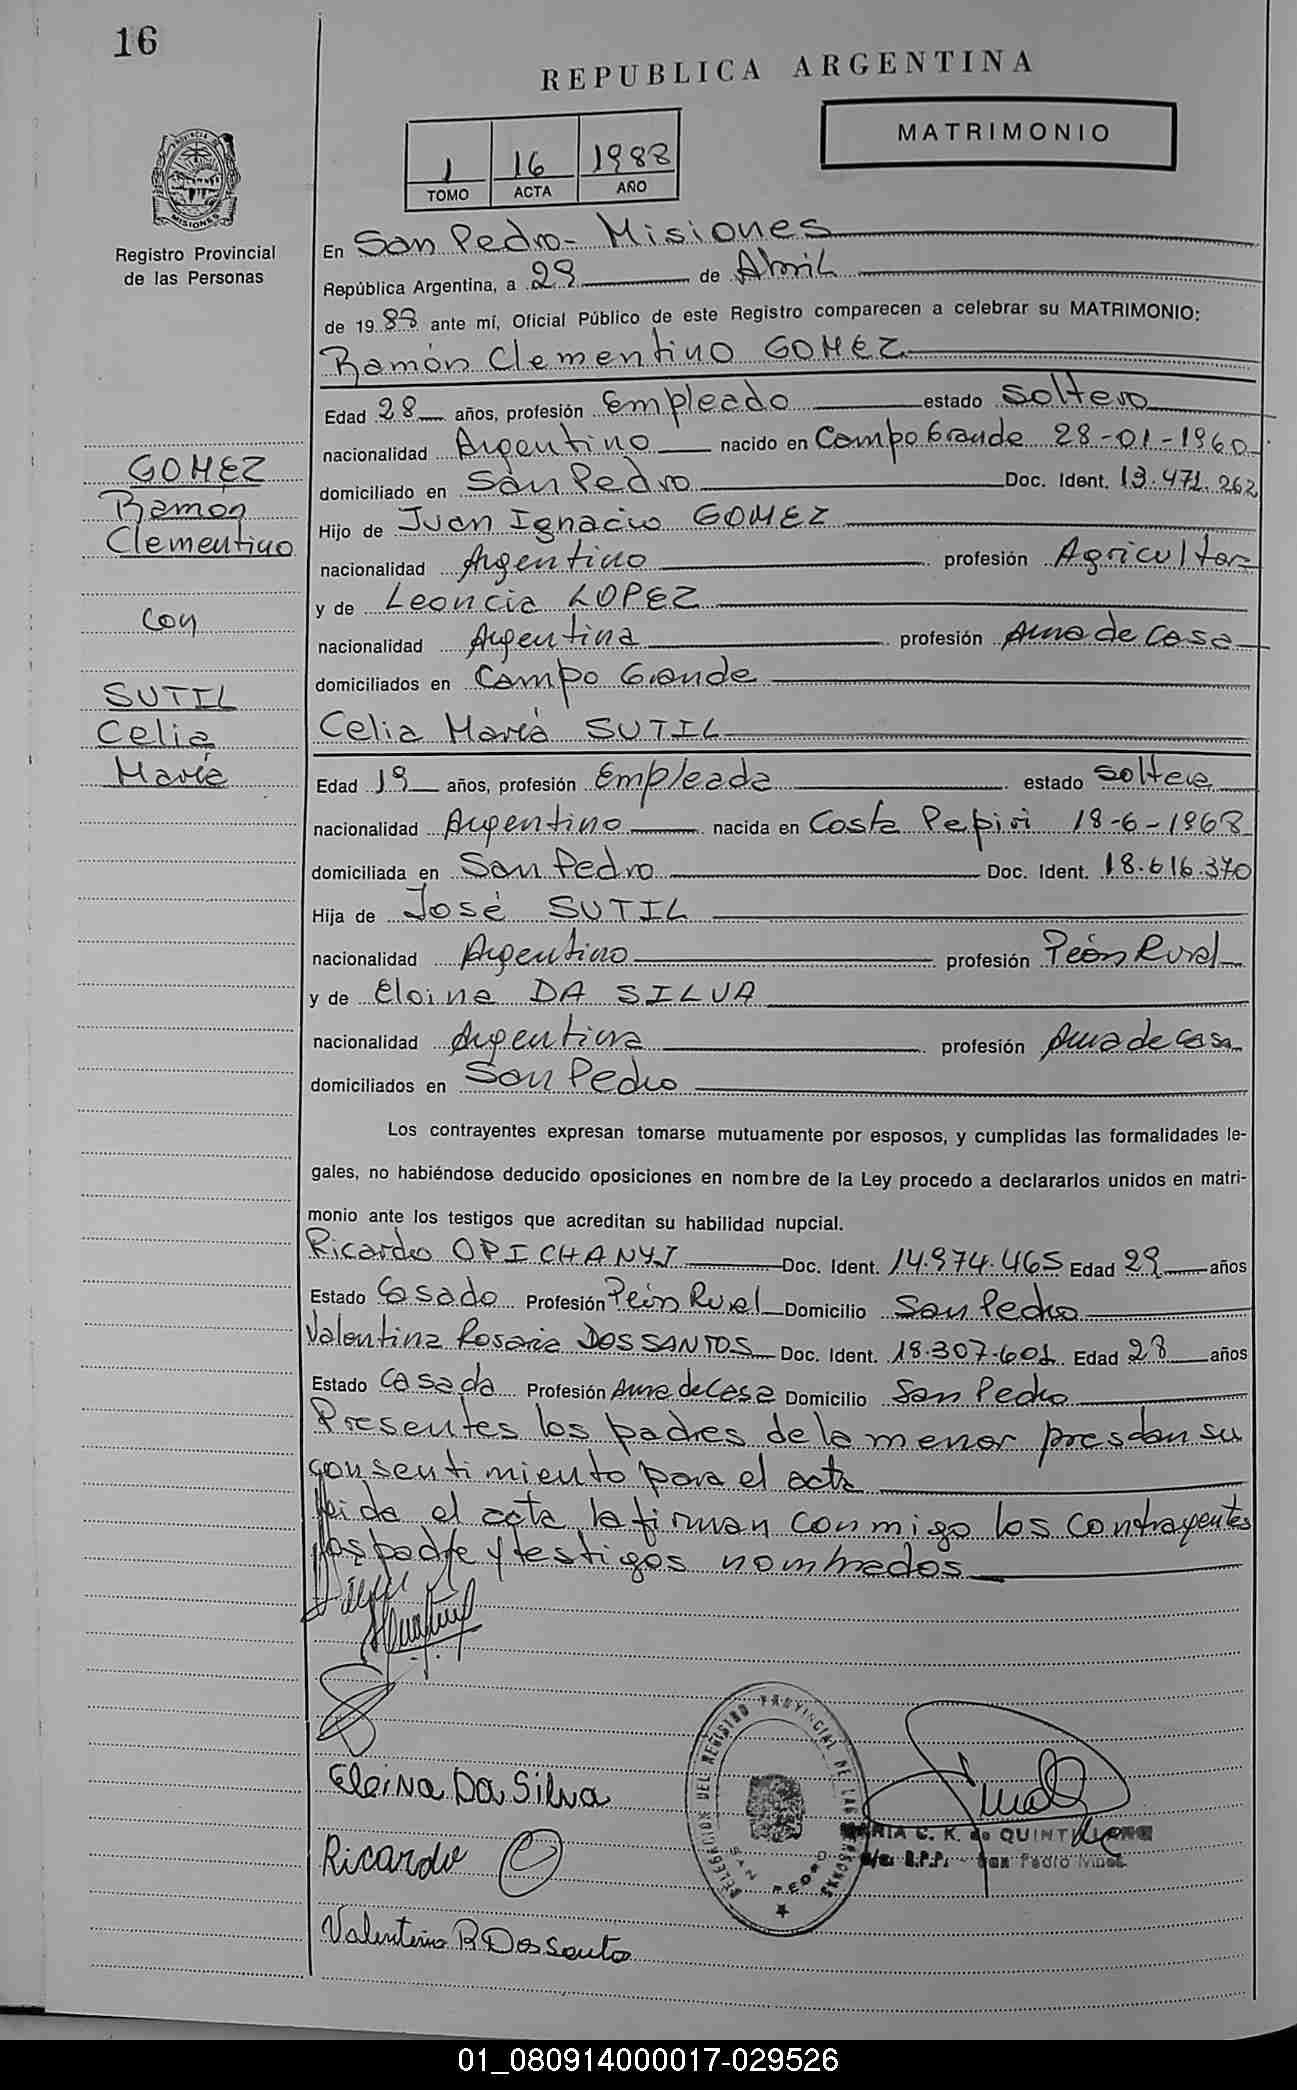 16
REPUBLICA ARGENTINA
MATRIMONIO
1 16 1988
TOMO ACTA AÑO
PROVINCIA DE
MISIONES
Registro Provincial
de las Personas
En San Pedro - Misiones
República Argentina, a 29 de Abril
de 1988 ante mí, Oficial Público de este Registro comparecen a celebrar su MATRIMONIO:
Ramón Clementino GOMEZ
Edad 28 años, profesión Empleado estado soltero
nacionalidad Argentino nacido en Campo Grande 28-01-1960
domiciliado en San Pedro Doc. Ident. 13.471.262
Hijo de Juan Ignacio GOMEZ
nacionalidad Argentino profesión Agricultor
y de Leoncia LOPEZ
nacionalidad Argentina profesión Ama de casa
domiciliados en Campo Grande
GOMEZ
Ramón
Clementino
con
SUTIL
Celia
María
Celia María SUTIL
Edad 19 años, profesión Empleada estado soltera
nacionalidad Argentino nacida en Costa Pepiri 18-6-1968
domiciliada en San Pedro Doc. Ident. 18.616.370
Hija de José SUTIL
nacionalidad Argentino profesión Peón Rural
y de Eloina DA SILVA
nacionalidad Argentina profesión Ama de casa
domiciliados en San Pedro
Los contrayentes expresan tomarse mutuamente por esposos, y cumplidas las formalidades le-
gales, no habiéndose deducido oposiciones en nombre de la Ley procedo a declararlos unidos en matri-
monio ante los testigos que acreditan su habilidad nupcial.
Ricardo OPICHANYI Doc. Ident. 14.974.465 Edad 29 años
Estado Casado Profesión Peón Rural Domicilio San Pedro
Valentina Rosaria DOS SANTOS Doc. Ident. 18.307.601 Edad 28 años
Estado Casada Profesión Ama de Casa Domicilio San Pedro
Presentes los padres de la menor prestan su
consentimiento para el acta
leida el acta la firman conmigo los contrayentes
los padre y testigos nombrados
Eleina Da Silva
Ricardo O
Valentina R Dos santo
DELEGACION DEL REGISTRO PROVINCIAL DE LAS PERSONAS
SAN PEDRO
MARIA C. K. de QUINTANA
R.P.P. - San Pedro Mnes.
01_080914000017-029526